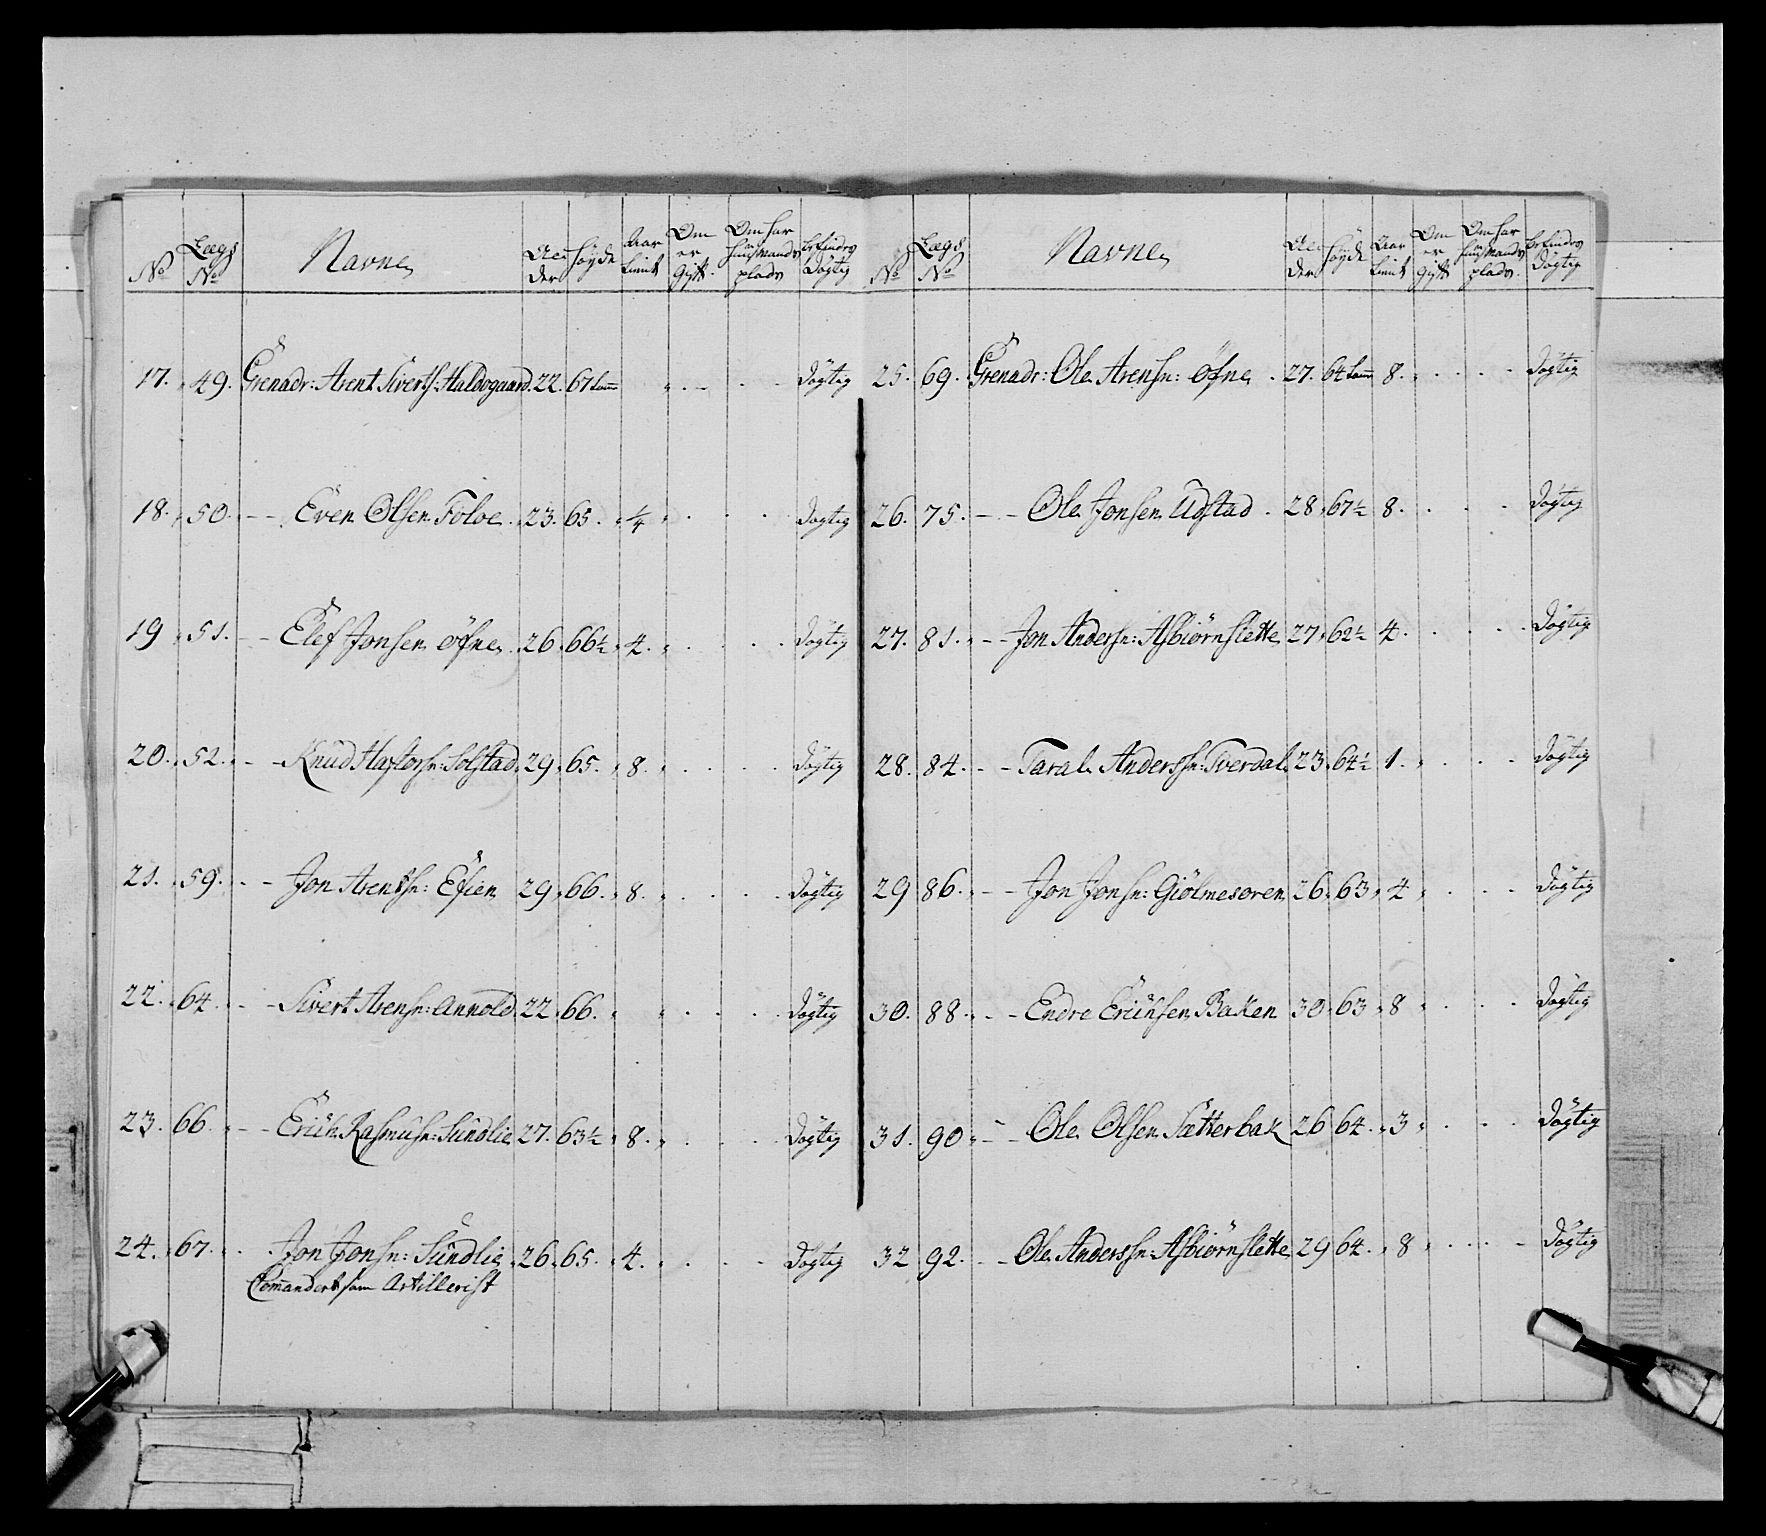 No Lægs No Navne Alder Høyde Aar tient Om er Gift Om har Huusmands plads befindes Dögtig
17. 49. Grenadr: Arent Siverts: Haldogaard. 22. 67 tom Dögtig
18. 50. Even Olsen Foloe. 23. 65. ¼ Dögtig
19 51. Elef Jonsen Öfne. 26. 66½ 4. Dögtig
20. 52. Knud Hastorsn: Solstad 29. 65. 8. Dögtig
21. 59. Jon Arentsn: Efien 29. 66. 8. Dögtig
22. 64. Sivert Arensn: Annold 22. 66. Dögtig
23. 66. Erich Rasmusn: Sundlie 27. 63½ 8. Dögtig
24. 67. Jon Jonsn: Sundlie 26. 65. 4. Dögtig
Comandert som Artillerist
No Lægs No Navne Alder Høyde Aar tient Om er Gift Om har Huusmands plads. befindes Dögtig
25. 69. Grenadr: Ole Arensn: Öfne. 27. 64 tom 8. Dögtig
26. 75. Ole Jonsen Udstad. 28. 67½ 8. Dögtig
27. 81. Jon Andersn: Asbiörnslette 27. 62½ 4. Dögtig
28. 84. Taral Anderssn: Sverdal 23. 64½ 1. Dögtig
29 86. Jon Jonsn: Giölmesøren 26. 63 4 Dögtig
30. 88. Endre Erichsen Baken 30. 63 8 Dögtig
31. 90 Ole Olsen Sætterbak 26 64. 3 Dögtig
32 92. Ole Anderssn: Asbiørnslette 29 64. 8 Dögtig